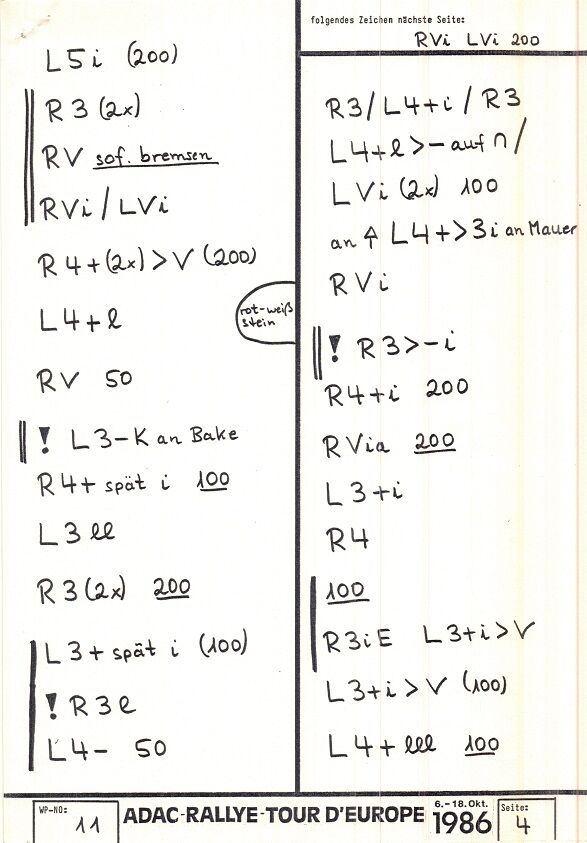 L5i (200)
R3 (2x)
RV sof. bremsen
RVi / LVi
R4+(2x) > V (200)
L4+l
RV 50
! L3-K an Bake
R4+ spät i 100
L3 ll
R3 (2x) 200
L3+ spät i (100)
! R3l
L4- 50
rot-weiß
stein
folgendes Zeichen nächste Seite:
RVi LVi 200
R3/L4+i/R3
L4+l>-auf ∩/
LVi (2x) 100
an ↑ L4+>3i an Mauer
RVi
! R3>-i
R4+i 200
RVia 200
L3+i
R4
100
R3iE L3+i>V
L3+i>V (100)
L4+lll 100
WP-NO: 11
ADAC-RALLYE-TOUR D'EUROPE 6.-18.Okt. 1986
Seite: 4